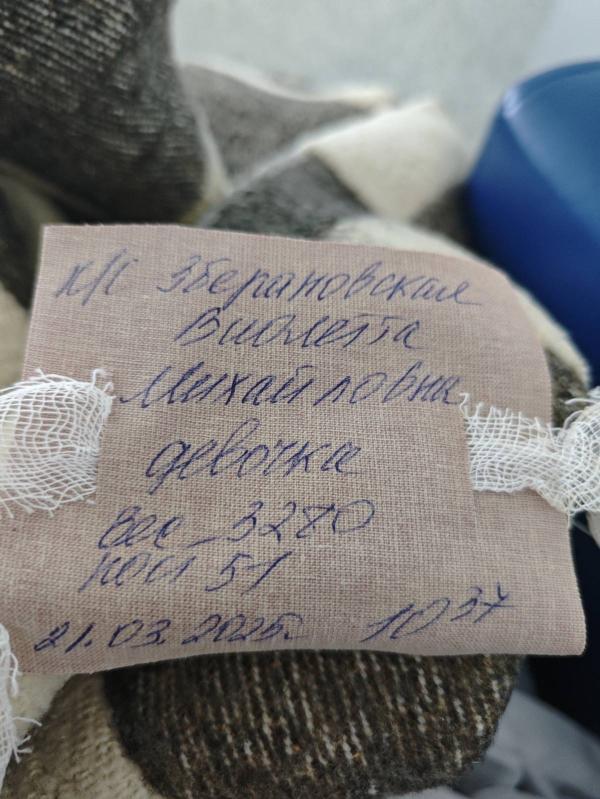 Зберановская
Виолетта
Михайловна
девочка
вес 3280
рост 51
21.03.2025г. 10 37